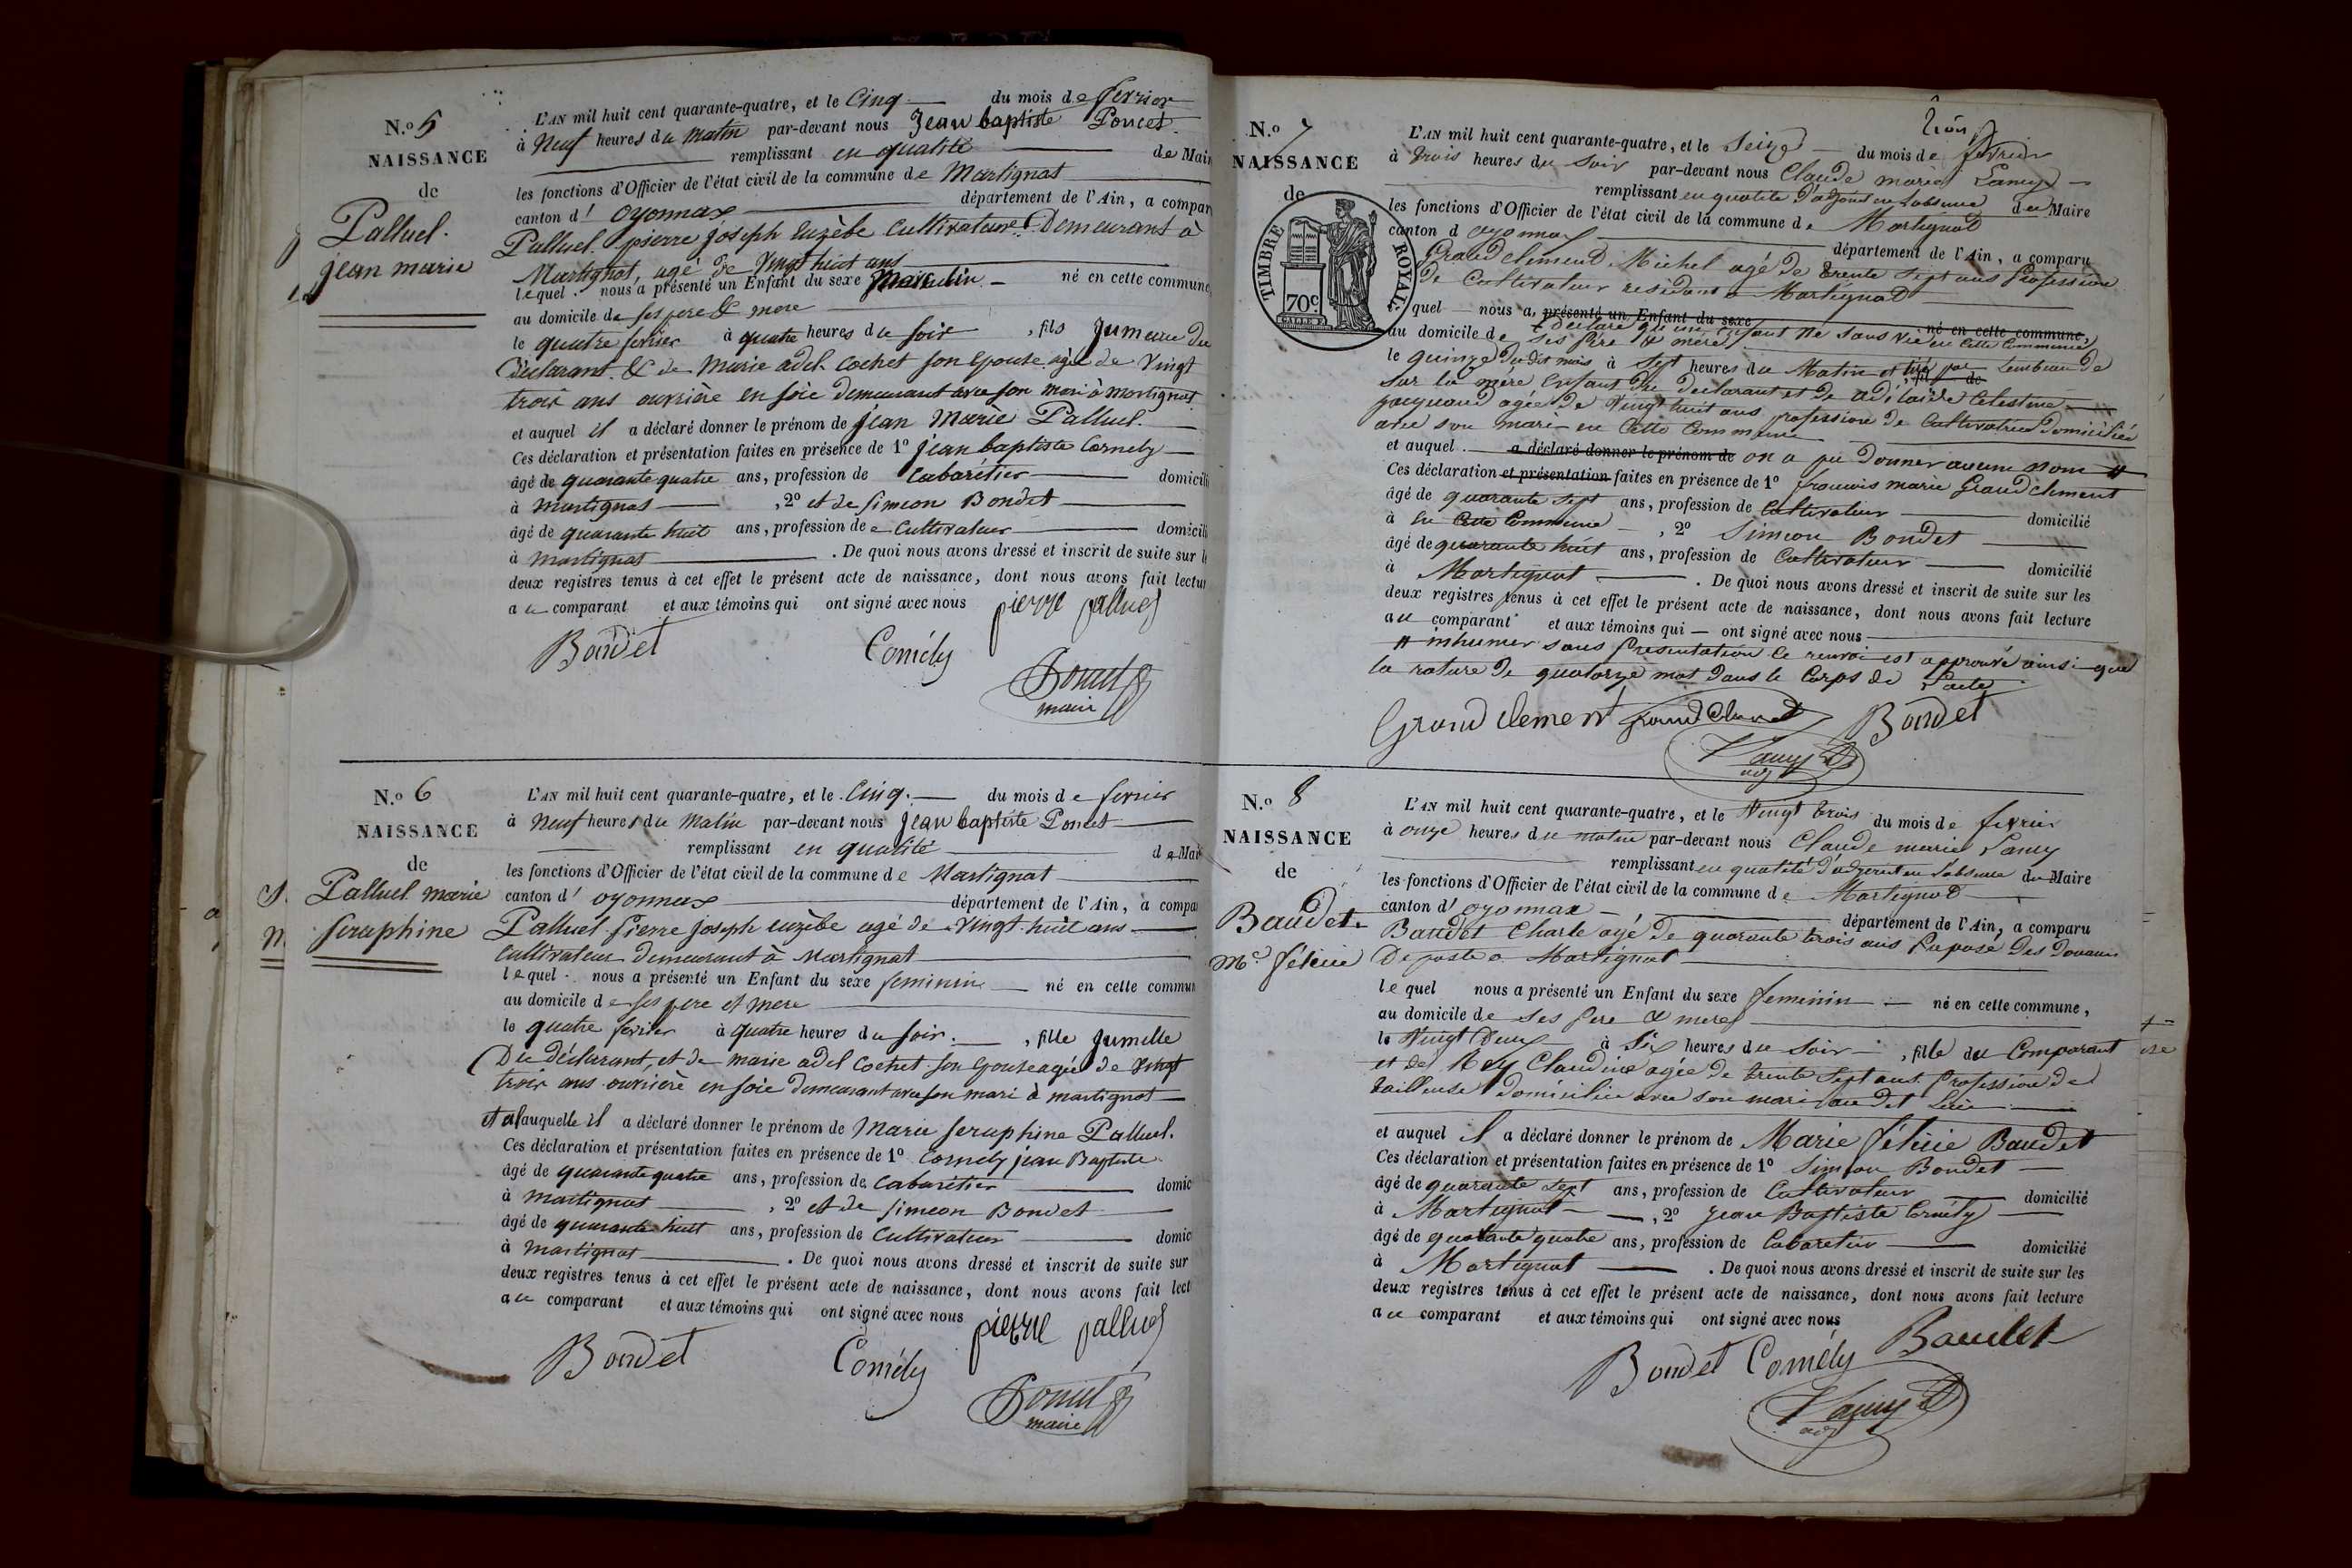 N.o 5
NAISSANCE
de
Palluel.
jean marie
L'AN mil huit cent quarante-quatre, et le Cinq du mois de fevrier
à Neuf heures du Matin par-devant nous Jean baptiste Poncet
remplissant en qualité de Mair
les fonctions d'Officier de l'état civil de la commune de Martignat
canton d' oyonnax département de l'Ain, a compar
Palluel pierre joseph Euzèbe Cultivateur Demeurant à
Martignat, agé de Vingt huit ans
lequel nous a présenté un Enfant du sexe Masculin né en cette commune,
au domicile de ses pere & mere
le quatre fevrier à quatre heures du soir, fils Jumeau du
déclarant & de Marie adel Cochet son Epouse agée de Vingt
trois ans ouvrière en soie demeurant avec son mari à martignat
et auquel il a déclaré donner le prénom de jean Marie Palluel.
Ces déclaration et présentation faites en présence de 1o jean baptiste Cornely
âgé de quarante quatre ans, profession de Cabarétier domicili
à martignat, 2o et de simeon Bondet
âgé de quarante huit ans, profession de Cultivateur domicili
à martignat. De quoi nous avons dressé et inscrit de suite sur l
deux registres tenus à cet effet le présent acte de naissance, dont nous avons fait lectur
au comparant et aux témoins qui ont signé avec nous pierre palluel
Bondet Cornély
Poncet
maire
N.o 6
NAISSANCE
de
Palluel marie
seraphine
L'AN mil huit cent quarante-quatre, et le Cinq. du mois de fevrier
à Neuf heures du Matin par-devant nous Jean baptiste Poncet
remplissant en qualité de Mai
les fonctions d'Officier de l'état civil de la commune de Martignat
canton d' oyonnax département de l'Ain, a compa
Palluel Pierre joseph euzèbe agé de Vingt huit ans
cultivateur demeurant à Martignat
lequel nous a présenté un Enfant du sexe feminin né en cette commun
au domicile de ses pere et mere
le quatre fevrier à quatre heures du soir., fille Jumelle
Du déclarant, et de marie adel Cochet son Epouse agée de Vingt
trois ans ouvrière en soie demeurant avec son mari à martignat
et a lauquelle il a déclaré donner le prénom de Marie seraphine Palluel.
Ces déclaration et présentation faites en présence de 1o Cornely jean Baptiste
âgé de quarante quatre ans, profession de Cabarétier domic
à martignat, 2o et de simeon Bondet
âgé de quarante huit ans, profession de Cultivateur domic
à martignat. De quoi nous avons dressé et inscrit de suite sur
deux registres tenus à cet effet le présent acte de naissance, dont nous avons fait lect
au comparant et aux témoins qui ont signé avec nous pierre palluel
Bondet Cornély
Poncet
maire
N.o 7
NAISSANCE
de
TIMBRE ROYAL
70c.
L'AN mil huit cent quarante-quatre, et le Seize du mois de fevrier
à trois heures du soir par-devant nous Claude marie Lamy
remplissant en qualité d'adjoint en l'absence du Maire
les fonctions d'Officier de l'état civil de la commune de Martignat
canton d oyonnax département de l'Ain, a comparu
Grandclement Michel agé de trente sept ans Profession
de Cultivateur residant a Martignat
quel nous a présenté un Enfant du sexe né en cette commune,
déclaré qu'un enfant né sans vie en cette Commune
au domicile de ses père & mère
le quinze du dit mois à sept heures du Matin et tiré par lambeau de
sur la mère Enfant du declarant et de adélaïde Celestine
jacquand agée de Vingt huit ans profession de Cultivatrice Domiciliée
avec son mari en Cette Commune
et auquel a déclaré donner le prénom de on a pu Donner aucun nom #
Ces déclaration et présentation faites en présence de 1o francois marie Grandclement
âgé de quarante sept ans, profession de Cultivateur domicilié
à en Cette Commune, 2o Simeon Bondet
âgé de quarante huit ans, profession de Cultivateur domicilié
à Martignat. De quoi nous avons dressé et inscrit de suite sur les
deux registres tenus à cet effet le présent acte de naissance, dont nous avons fait lecture
au comparant et aux témoins qui ont signé avec nous
# inhumer sans presentation le renvoi est approuvé ainsi que
la rature de quatorze mot dans le Corps de l'acte
Grandclement Bondet
Lamy
adj
N.o 8
NAISSANCE
de
Baudet
Me félicie
L'AN mil huit cent quarante-quatre, et le Vingt trois du mois de fevrier
à onze heures du matin par-devant nous Claude marie Lamy
remplissant en qualité d'adjoint en l'absence du Maire
les fonctions d'Officier de l'état civil de la commune de Martignat
canton d' oyonnax département de l'Ain, a comparu
Baudet Charle agé de quarante trois ans Préposé Des Douanes
De poste a Martignat
lequel nous a présenté un Enfant du sexe feminin né en cette commune,
au domicile de ses père & mere
le Vingt Deux à Six heures du soir, fille du Comparant
et de Rey Claudine agée de trente sept ans Profession de
tailleuse domiciliée avec son mari au dit Lieu
et auquel il a déclaré donner le prénom de Marie félicie Baudet
Ces déclaration et présentation faites en présence de 1o Simeon Bondet
âgé de quarante sept ans, profession de Cultivateur domicilié
à Martignat, 2o Jean Baptiste Cornely
âgé de quarante quatre ans, profession de Cabaretier domicilié
à Martignat. De quoi nous avons dressé et inscrit de suite sur les
deux registres tenus à cet effet le présent acte de naissance, dont nous avons fait lecture
au comparant et aux témoins qui ont signé avec nous
Bondet Cornély Baudet
Lamy
adj